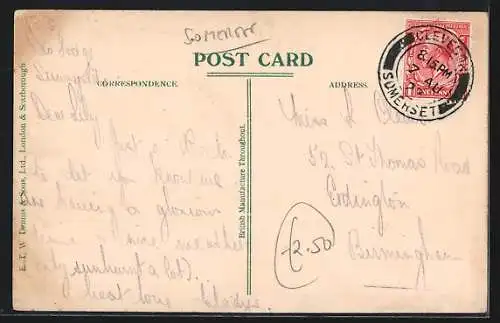 SOMERSET
POST CARD
CORRESPONDENCE.
ADDRESS.
Dear Lily
Just a
to let you know we
are having a glorious
time & nice weather
only sunburnt a lot).
best love Gladys.
E. T. W. Dennis & Sons, Ltd., London & Scarborough
British Manufacture Throughout.
CLEVEDON
8.15 PM
SOMERSET
Miss L
52, St Thomas Road
Erdington
Birmingham
2.50